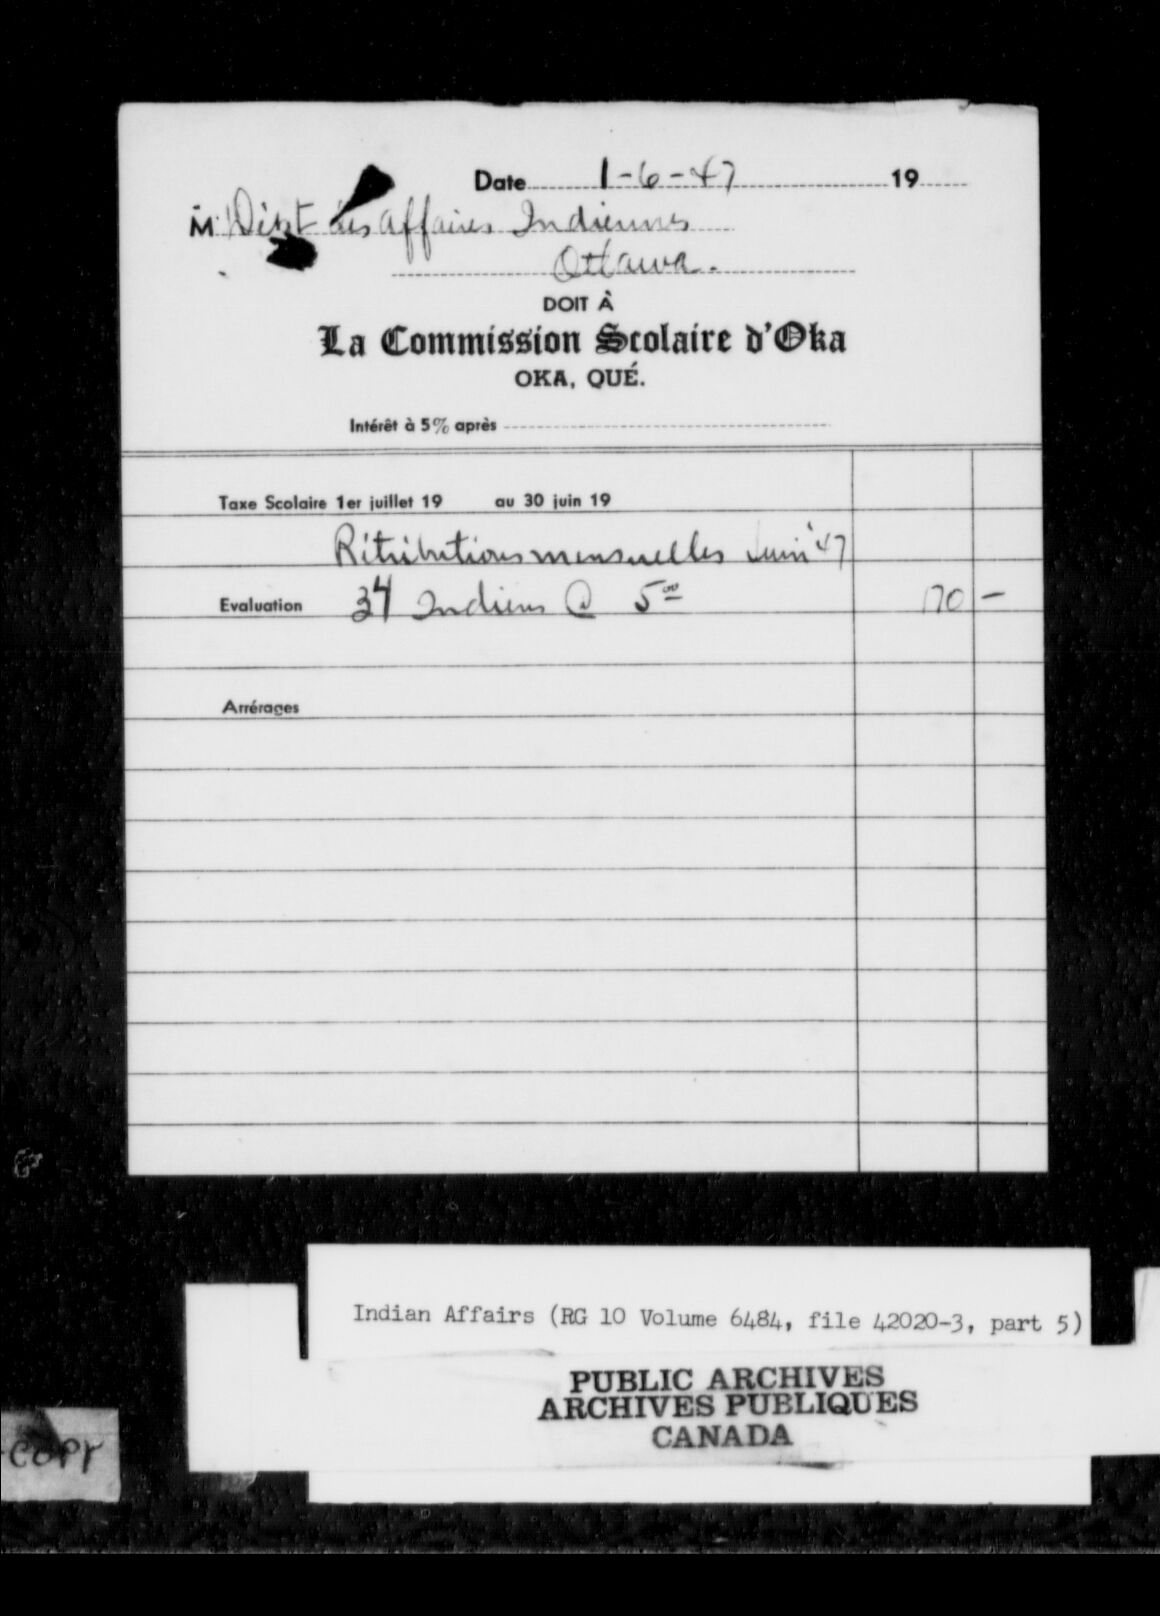 Date 1-6-47 19
M. Dépt des Affaires Indiennes
Ottawa.
DOIT À
La Commission Scolaire d'Oka
OKA, QUÉ.
Intérêt à 5% après
Taxe Scolaire 1er juillet 19 au 30 juin 19
Rétributions mensuelles Juin '47
Evaluation 34 Indiens @ 5.00 170 —
Arrérages
Indian Affairs (RG 10 Volume 6484, file 42020-3, part 5)
PUBLIC ARCHIVES
ARCHIVES PUBLIQUES
CANADA
COPY